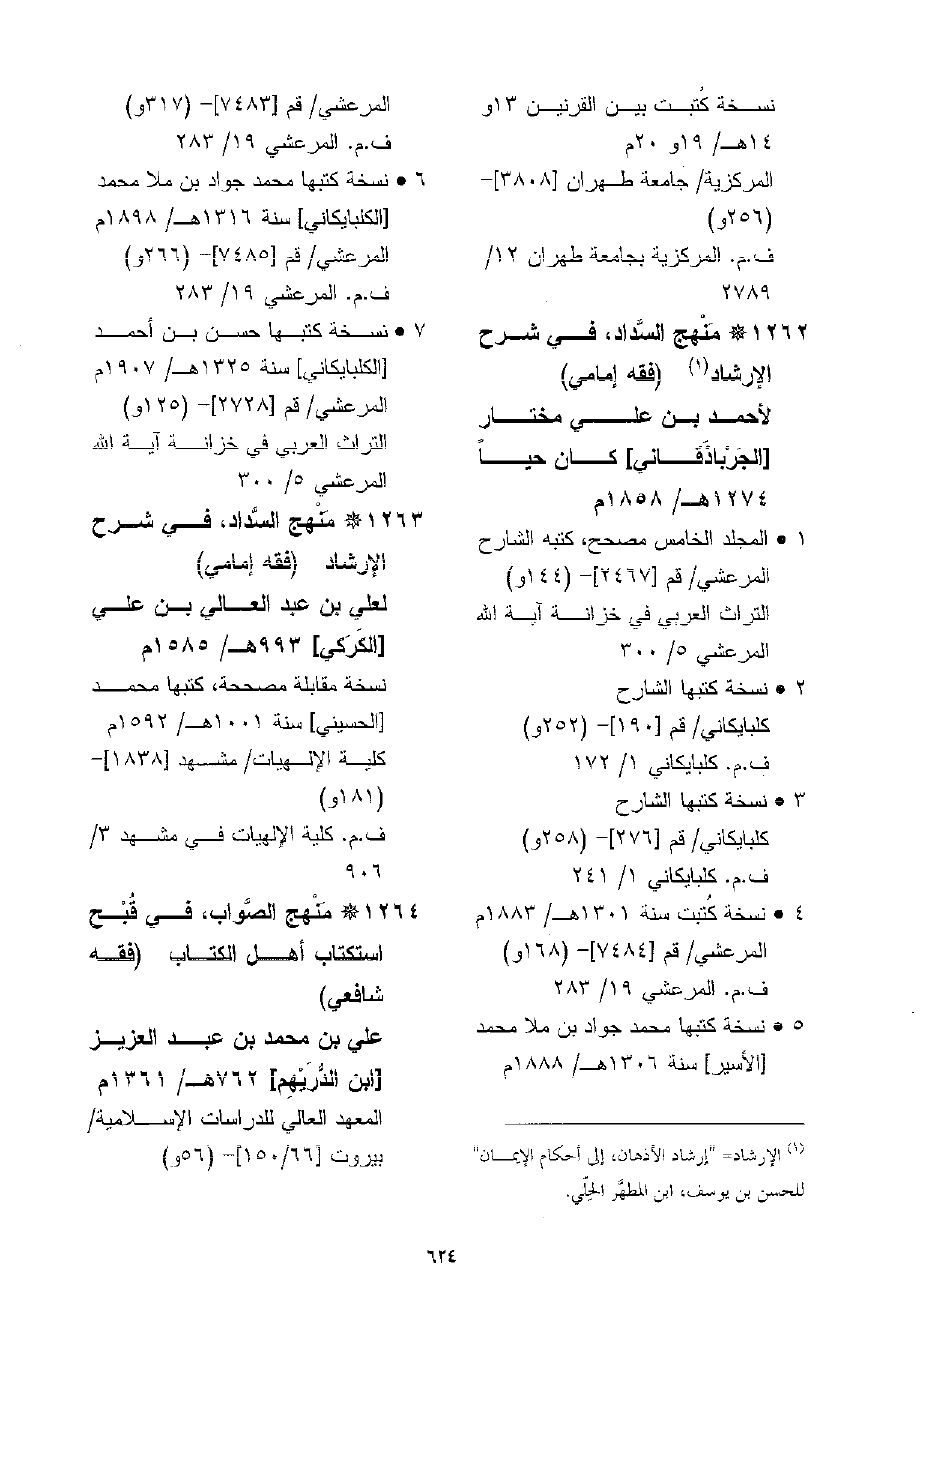 نسخة كُتبت بين القرنين ١٣و
١٤هـ/ ١٩و ٢٠م
المركزية/ جامعة طهران [٣٨٠٨]-
(٢٥٦و)
ف.م. المركزية بجامعة طهران ١٢/
٢٧٨٩
١٢٦٢* منْهج السَّداد، في شرح
الإرشاد(١) (فقه إمامي)
لأحمد بن علي مختار
[الجَرْباذَقاني] كان حياً
١٢٧٤هـ/ ١٨٥٨م
١ • المجلد الخامس مصحح، كتبه الشارح
المرعشي/ قم [٢٤٦٧]- (١٤٤و)
التراث العربي في خزانة آية الله
المرعشي ٥/ ٣٠٠
٢ • نسخة كتبها الشارح
كلبايكاني/ قم [١٩٠]- (٢٥٢و)
ف.م. كلبايكاني ١/ ١٧٢
٣ • نسخة كتبها الشارح
كلبايكاني/ قم [٢٧٦]- (٢٥٨و)
ف.م. كلبايكاني ١/ ٢٤١
٤ • نسخة كُتبت سنة ١٣٠١هـ/ ١٨٨٣م
المرعشي/ قم [٧٤٨٤]- (١٦٨و)
ف.م. المرعشي ١٩/ ٢٨٣
٥ • نسخة كتبها محمد جواد بن ملا محمد
[الأسير] سنة ١٣٠٦هـ/ ١٨٨٨م
(١) الإرشاد= "إرشاد الأذهان، إلى أحكام الإيمان"
للحسن بن يوسف، ابن المطهَّر الحلّي.
المرعشي/ قم [٧٤٨٣]- (٣١٧و)
ف.م. المرعشي ١٩/ ٢٨٣
٦ • نسخة كتبها محمد جواد بن ملا محمد
[الكلبايكاني] سنة ١٣١٦هـ/ ١٨٩٨م
المرعشي/ قم [٧٤٨٥]- (٢٦٦و)
ف.م. المرعشي ١٩/ ٢٨٣
٧ • نسخة كتبها حسن بن أحمد
[الكلبايكاني] سنة ١٣٢٥هـ/ ١٩٠٧م
المرعشي/ قم [٢٧٢٨]- (١٢٥و)
التراث العربي في خزانة آية الله
المرعشي ٥/ ٣٠٠
١٢٦٣* منْهج السَّداد، في شرح
الإرشاد (فقه إمامي)
لعلي بن عبد العالي بن علي
[الكَرَكي] ٩٩٣هـ/ ١٥٨٥م
نسخة مقابلة مصححة، كتبها محمد
[الحسيني] سنة ١٠٠١هـ/ ١٥٩٢م
كلية الإلهيات/ مشهد [١٨٣٨]-
(١٨١و)
ف.م. كلية الإلهيات في مشهد ٣/
٩٠٦
١٢٦٤* منْهج الصَّواب، في قُبْح
استكتاب أهل الكتاب (فقه
شافعي)
علي بن محمد بن عبد العزيز
[ابن الدُّرَيْهِم] ٧٦٢هـ/ ١٣٦١م
المعهد العالي للدراسات الإسلامية/
بيروت [١٥٠/٦٦]- (٥٦و)
٦٢٤